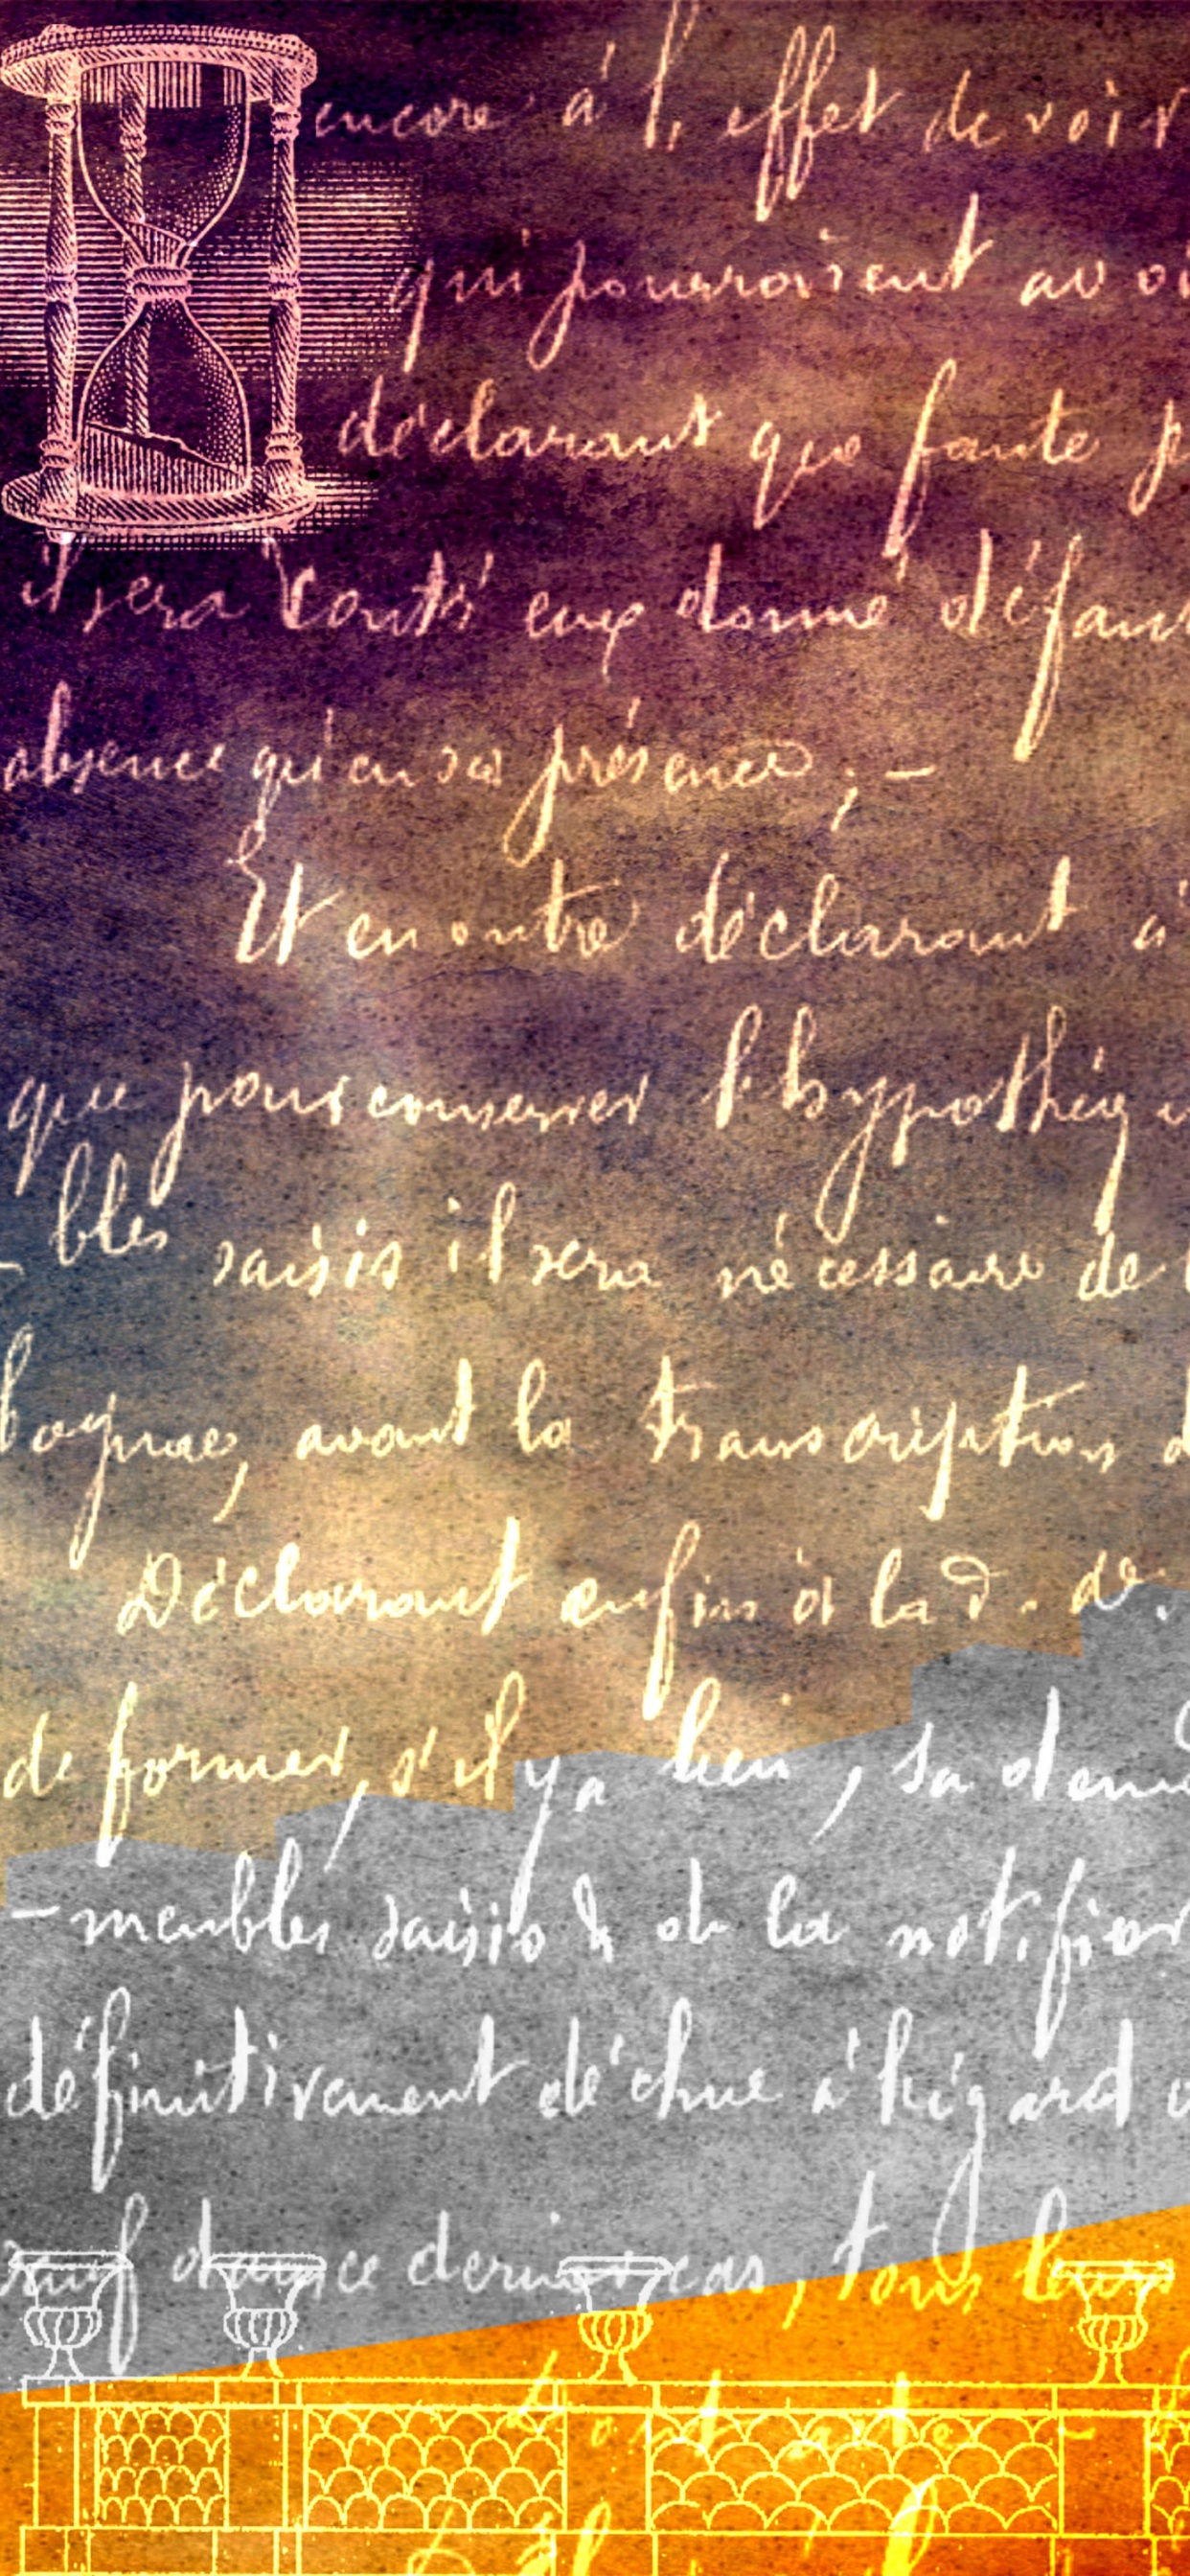 encore à l'effet de voir
qui pourroient avoi
déclarant que faute p
il sera contr eux donné défaut
absence qu'en sa présence ; —
Et en outre déclarant à
que pour conserver l'hypothèq
- bles saisis il sera nécessaire de
avant la transcription d
Déclarant enfin à la d. de.
de former, s'il y a lieu, sa dem
- meubles saisis & de la notifier
définitivement déchue à l'égard
dans ce dernier cas, tous leurs